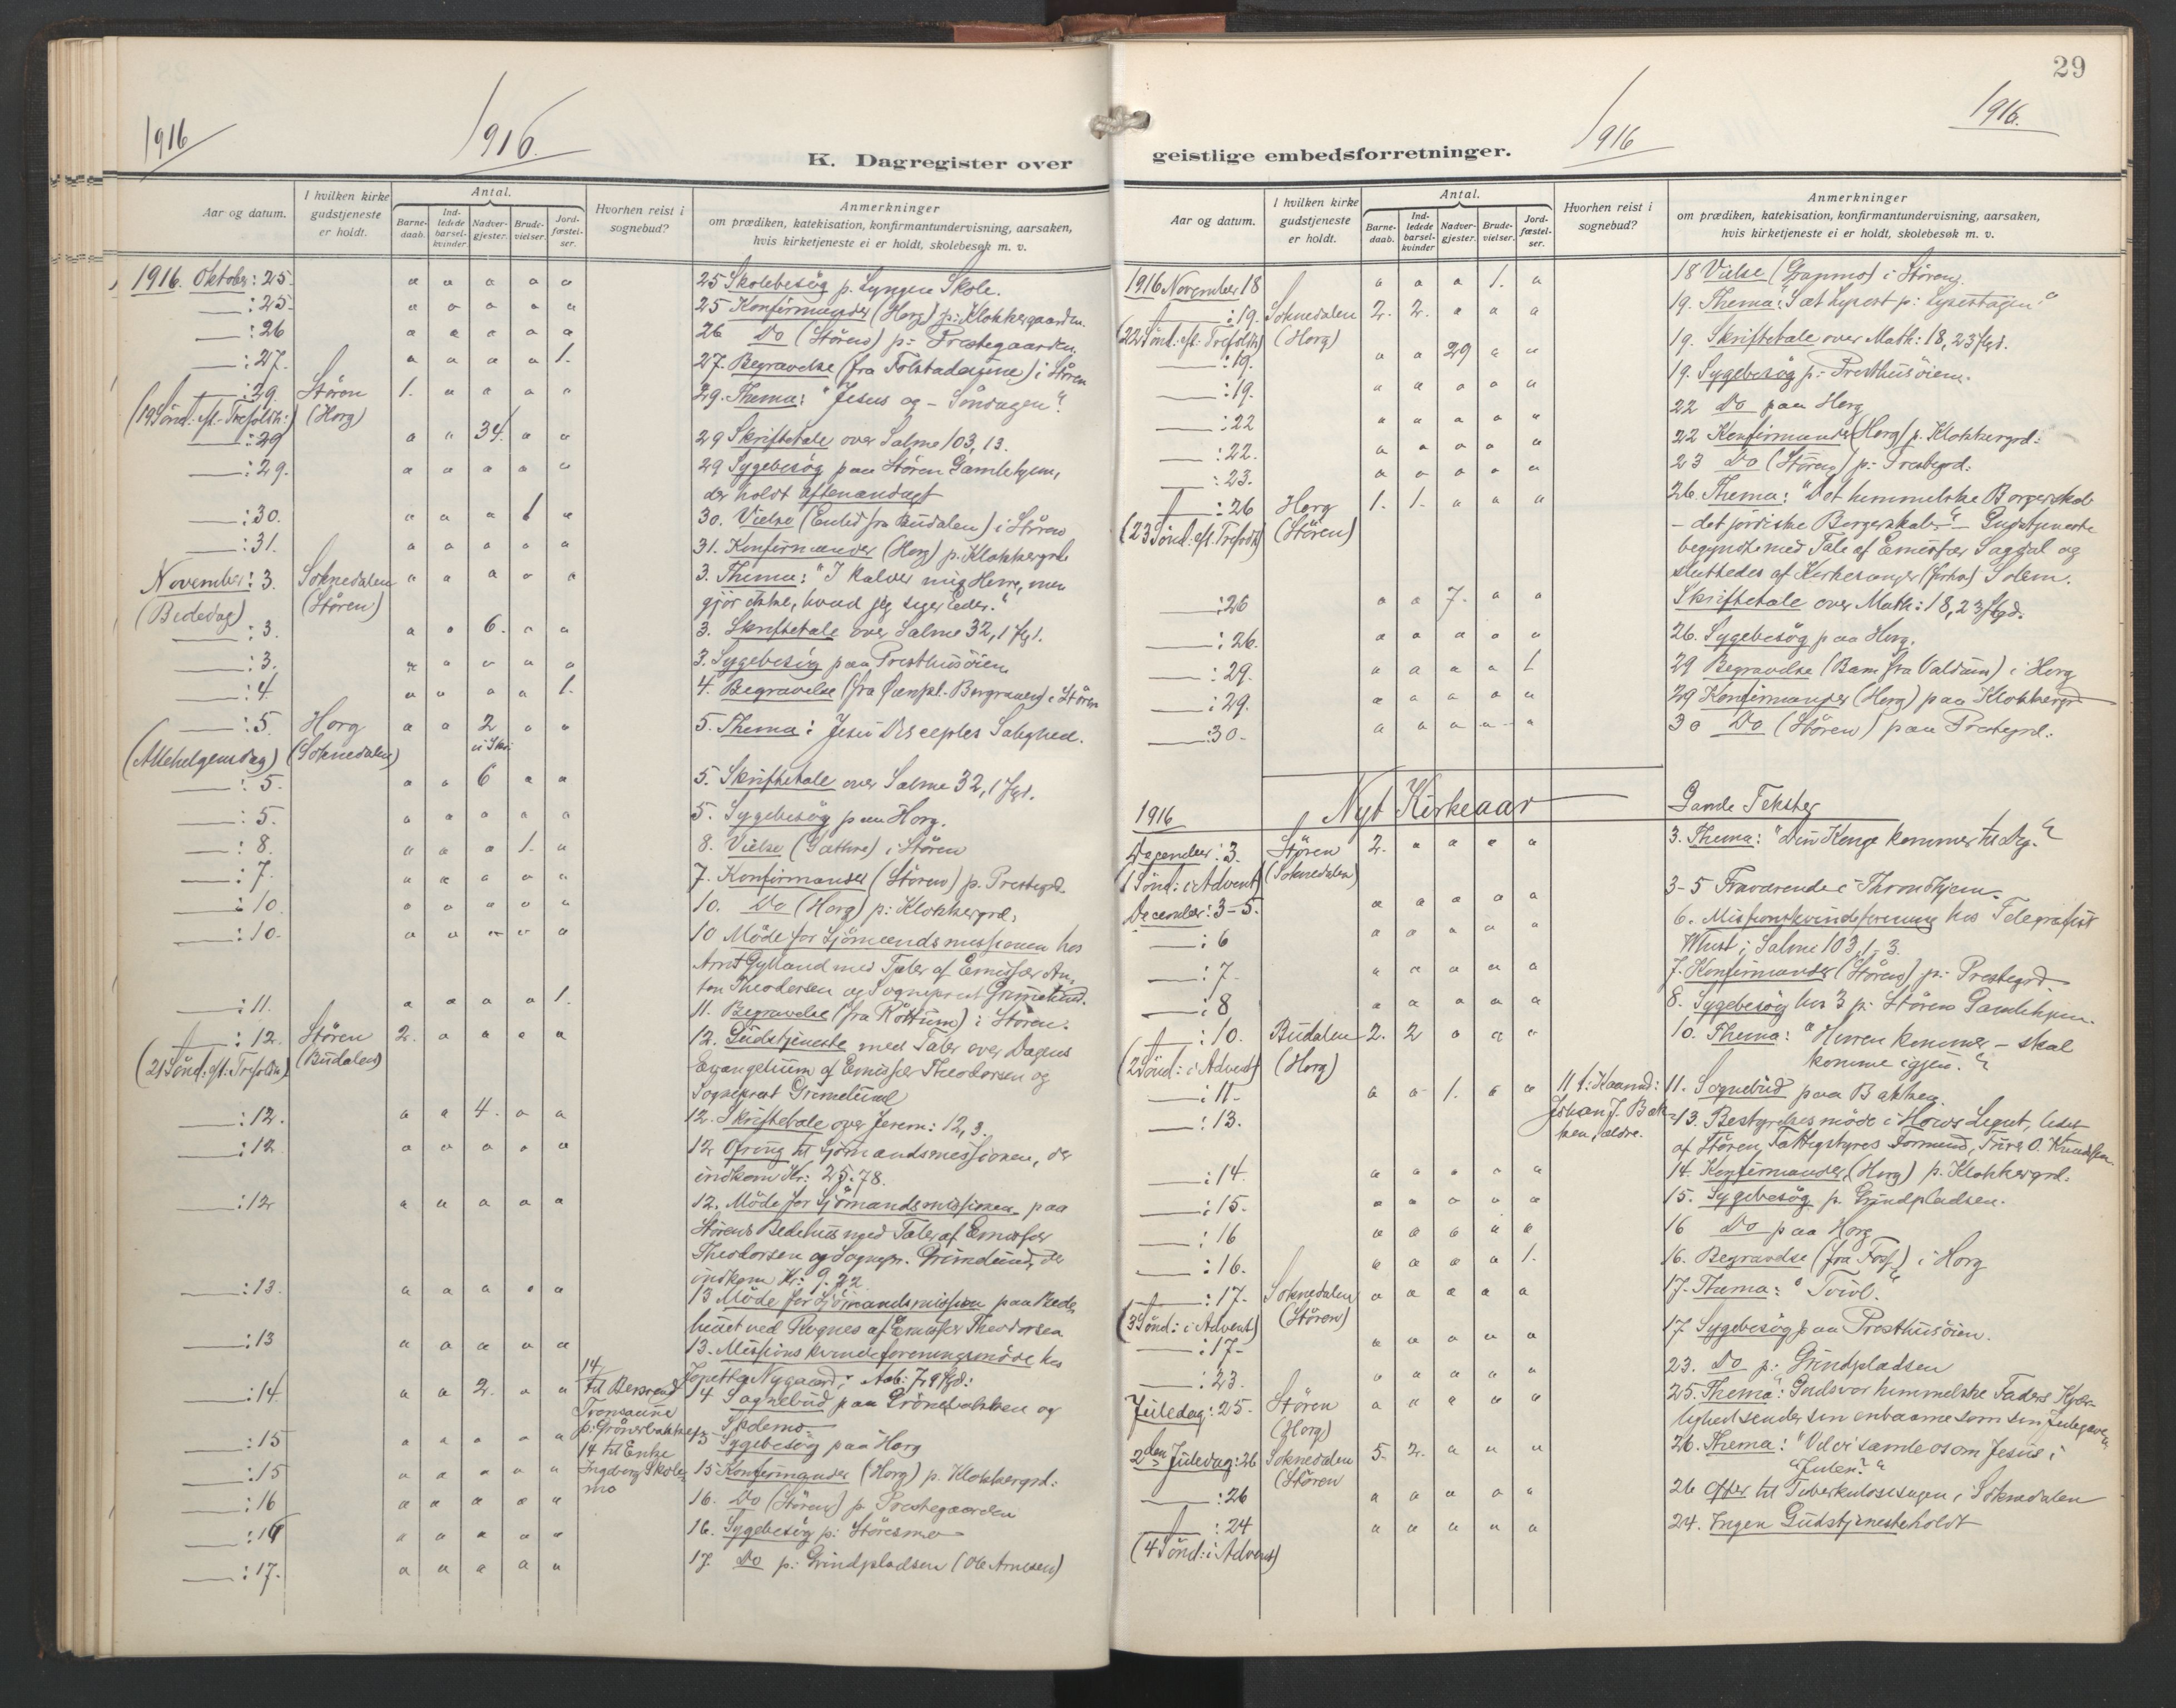 29
1916
1916.
1916
1916.
K. Dagregister over
geistlige embedsforretninger.
Aar og datum.
I hvilken kirke gudstjeneste er holdt.
Antal.
Barne-daab.
Ind-ledede barsel-kvinder.
Nadver-gjester.
Brude-vielser.
Jord-fæstel-ser.
Hvorhen reist i sognebud?
Anmerkninger
om prædiken, katekisation, konfirmantundervisning, aarsaken,
hvis kirketjeneste ei er holdt, skolebesøk m. v.
1916. Oktober: 25. " " " " " 25 Skolebesög p. Lyngen Skole.
: 25. " " " " " 25 Konfirmander (Horg) p: Klokkergaarden.
: 26 " " " " " 26 Do (Støren) p: Prestegaarden
: 27. " " " " 1. 27. Begravelse (fra Folstadøiene) i Støren
: 29. Støren 1. " " " " 29. Thema: "Jesus og - Søndagen".
(19 Sönd: eft. Trefoldh:) (Horg)
: 29 " " 34. " " 29 Skriftetale over Salme 103, 13.
: 29. " " " " " 29 Sygebesög paa Støren Gamlehjem,
der holdt aftenandagt
: 30. " " " 1 " 30. Vielse (Enlid fra Budalen) i Støren
: 31. " " " " " 31. Konfirmander (Horg) p. Klokkergrd.
November: 3. Soknedalen " " " " " 3. Thema: "I kalder mig Herre, men
(Bededag) (Støren) gjör ikke, hvad jeg siger Eder."
: 3. " " 6. " " 3. Skriftetale over Salme 32, 1 flgd.
: 3. " " " " " 3. Sygebesög paa Presthusöien
: 4. " " " " 1. 4. Begravelse (fra Bergmann) i Støren
: 5. Horg " " 2 " " 5. Thema: Jesu Disciples Salighed.
(Allehelgensdag) (Soknedalen)
: 5. " " 6 " " 5. Skriftetale over Salme 32, 1 flgd.
: 5. " " " " " 5. Sygebesög paa Horg.
: 8. " " " 1. " 8. Vielse (Gathre) i Støren
: 7. " " " " " 7. Konfirmander (Støren) p. Prestegrd.
: 10. " " " " " 10. Do (Horg) p: Klokkergrd.
: 10. " " " " " 10 Möde for Sjömandsmissionen hos
Arnt Gylland med Taler af Emissær An-
ton Theodorsen og Sogneprest Grimelund.
: 11. " " " " 1. 11. Begravelse (fra Röttum) i Støren.
: 12. Støren 2. " " " " 12. Gudstjeneste med Taler over Dagens
(21 Sönd: eft. Trefoldh) (Budalen) Evangelium af Emissær Theodorsen og
Sogneprest Grimelund
: 12. " " 4. " " 12. Skriftetale over Jerem: 12, 3.
: 12. " " " " " 12 Ofring til Sjömandsmissionen, der
indkom Kr: 25.78.
: 12 " " " " " 12. Möde for Sjömandsmissionen paa
Störens Bedehus med Taler af Emissær
Theodorsen og Sognepr. Grimelund, der
indkom Kr: 9.22
: 13. " " " " " 13 Möde for Sjömandsmission paa Bede
huset ved Rognes af Emissær Theodorsen
: 13 " " " " " 13. Missionskvindeforeningsmöde hos
Nygaard; Aab: 7, 9 flgd:
: 14. " " 2. " " 14 til Berntine Tronsaune p. Grönebakken 14 Sognebud paa Grönebakken og
Spdemo
: 15 " " " " " 14 til Enke Ingeborg Skole-mo 15 Sygebesög paa Horg
: 15 " " " " " 15 Konfirmander (Horg) p. Klokkergrd:
: 16 " " " " " 16. Do (Støren) p Prestegaarden
: 16 " " " " " 16. Sygebesög p: Störesmo
: 17. " " " " " 17. Do p: Grindpladsen (Ole Arnesen)
Aar og datum.
I hvilken kirke gudstjeneste er holdt.
Antal.
Barne-daab.
Ind-ledede barsel-kvinder
Nadver-gjester.
Brude-vielser.
Jord-fæstel-ser.
Hvorhen reist i sognebud?
Anmerkninger
om prædiken, katekisation, konfirmantundervisning, aarsaken,
hvis kirketjeneste ei er holdt, skolebesøk m. v.
1916 November 18 " " " 1. " 18 Vielse (Granmo) i Støren
: 19. Soknedalen 2. 2. " " " 19. Thema: "Sæt Lyset p: Lysestagen."
(22 Sönd: eft. Trefoldh) (Horg)
: 19. " " 29 " " 19. Skriftetale over Math: 18, 23 flgd.
: 19. " " " " " 19. Sygebesög p: Presthusöien.
: 22 " " " " " 22 Do paa Horg
: 22. " " " " " 22 Konfirmander (Horg) p. Klokkergrd:
: 23. " " " " " 23 Do (Støren) p: Prestegrd:
: 26 Horg 1. 1. " " " 26. Thema: "Det himmelske Borgerskab
(23 Sönd: eft. Trefoldh) (Støren) - det jordiske Borgerskab". Gudstjeneste
begyndte med Tale af Emissær Sagdal og
sluttedes af Kirkesanger (forhv) Solem.
: 26 " " 7. " " Skriftetale over Math: 18, 23 flgd.
: 26. " " " " " 26. Sygebesög paa Horg.
: 29. " " " " 1. 29 Begravelse (Barn fra Valdum) i Horg
: 29. " " " " " 29 Konfirmander (Horg) paa Klokkergrd
30. " " " " " 30 Do (Støren) paa Prestegrd:
1916 Nyt Kirkeaar Gamle Tekster
December: 3. Støren 2. " " " " 3. Thema: "Din Konge kommer til dig."
(1 Sönd: i Advent) (Soknedalen)
December: 3-5. " " " " " 3-5 Fraværende i Throndhjem.
: 6 " " " " " 6. Missionskvindeforening hos Telegrafist
Wust; Salme 103, 1-3.
: 7. " " " " " 7. Konfirmander (Støren) p: Prestegrd.
: 8 " " " " " 8. Sygebesög hos 3 p: Støren Gamlehjem.
: 10. Budalen 2. 2 " " " 10. Thema: "Herren kommer - skal
(2 Sönd: i Advent) (Horg) komme igjen."
: 11. " " 1. " " 11 t: Kaarmd: Johan J. Bak-ken, ældre. 11. Sognebud paa Bakken
: 13. 13. Bestyrelsesmöde i Hovs Legat, ledet
af Støren Fattigstyres Formand, O. Knudsen.
: 14. " " " " " 14. Konfirmander (Horg) p. Klokkergrd.
: 15. " " " " " 15. Sygebesög p. Grindpladsen.
: 16 " " " " " 16 Do paa Horg
: 16. " " " " 1. 16. Begravelse (fra Foss) i Horg
: 17. Soknedalen " " " " " 17. Thema: "Tvivl."
(3 Sönd: i Advent) (Støren)
: 17. " " " " " 17. Sygebesög paa Presthusöien.
: 23. " " " " " 23. Do p: Grindpladsen
Juledag: 25. Støren " " " " " 25. Thema: "Gud vor himmelske Faders Kjær-
(Horg) lighed sender sin enbaarne som sin Julegave"
2den Juledag: 26 Soknedalen 5. 2. " " " 26. Thema: "Vil vi samle os om Jesus i
(Støren Julen?"
: 26 " " " " " 26 Offer til Tuberkulosesagen i Soknedalen
: 24 " " " " " 24. Ingen Gudstjeneste holdt
(4 Sönd: i Advent)